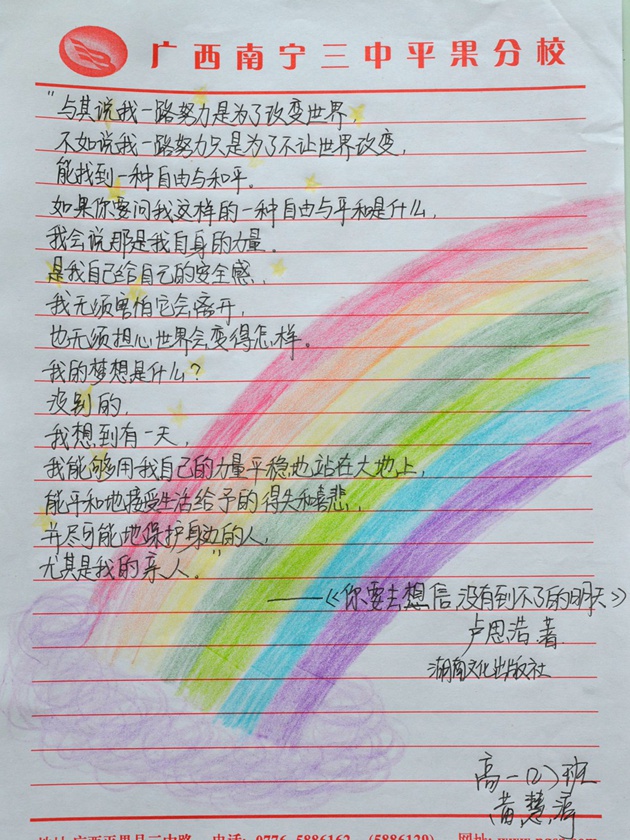 广西南宁三中平果分校
“与其说我一路努力是为了改变世界,
不如说我一路努力只是为了不让世界改变,
能找到一种自由与和平。
如果你要问我这样的一种自由与平和是什么,
我会说那是我自身的力量。
是我自己给自己的安全感,
我无须害怕它会离开,
也无须担心世界会变得怎样。
我的梦想是什么?
没别的,
我想到有一天,
我能够用我自己的力量平稳地站在大地上,
能平和地接受生活给予的得失和喜悲,
并尽可能地保护身边的人,
尤其是我的亲人。”
——《你要去想信 没有到不了的明天》
卢思浩 著
湖南文化出版社
高一(2)班
黄慧